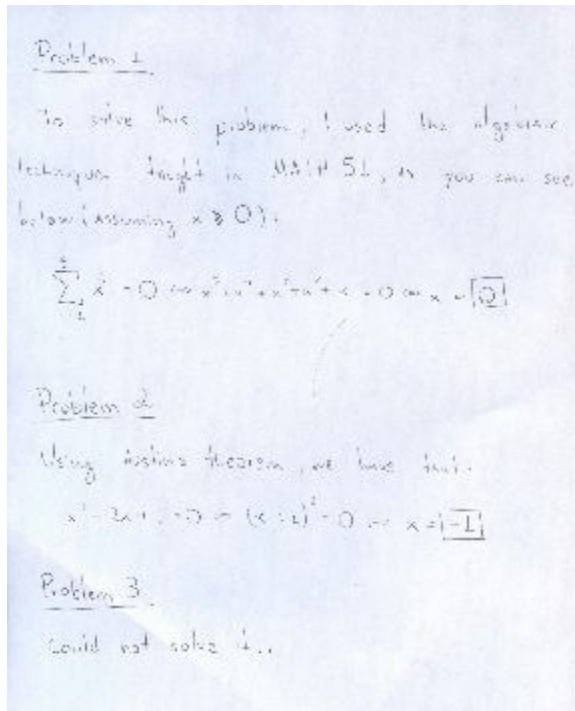 Problem 1
To solve this problem, I used the algebraic
techniques taught in MATH 51, as you can see
below (assuming x ≥ 0):
= 0 x = 0
Problem 2
Using theorem, we have that:
= 0 x = -1
Problem 3
Could not solve it..